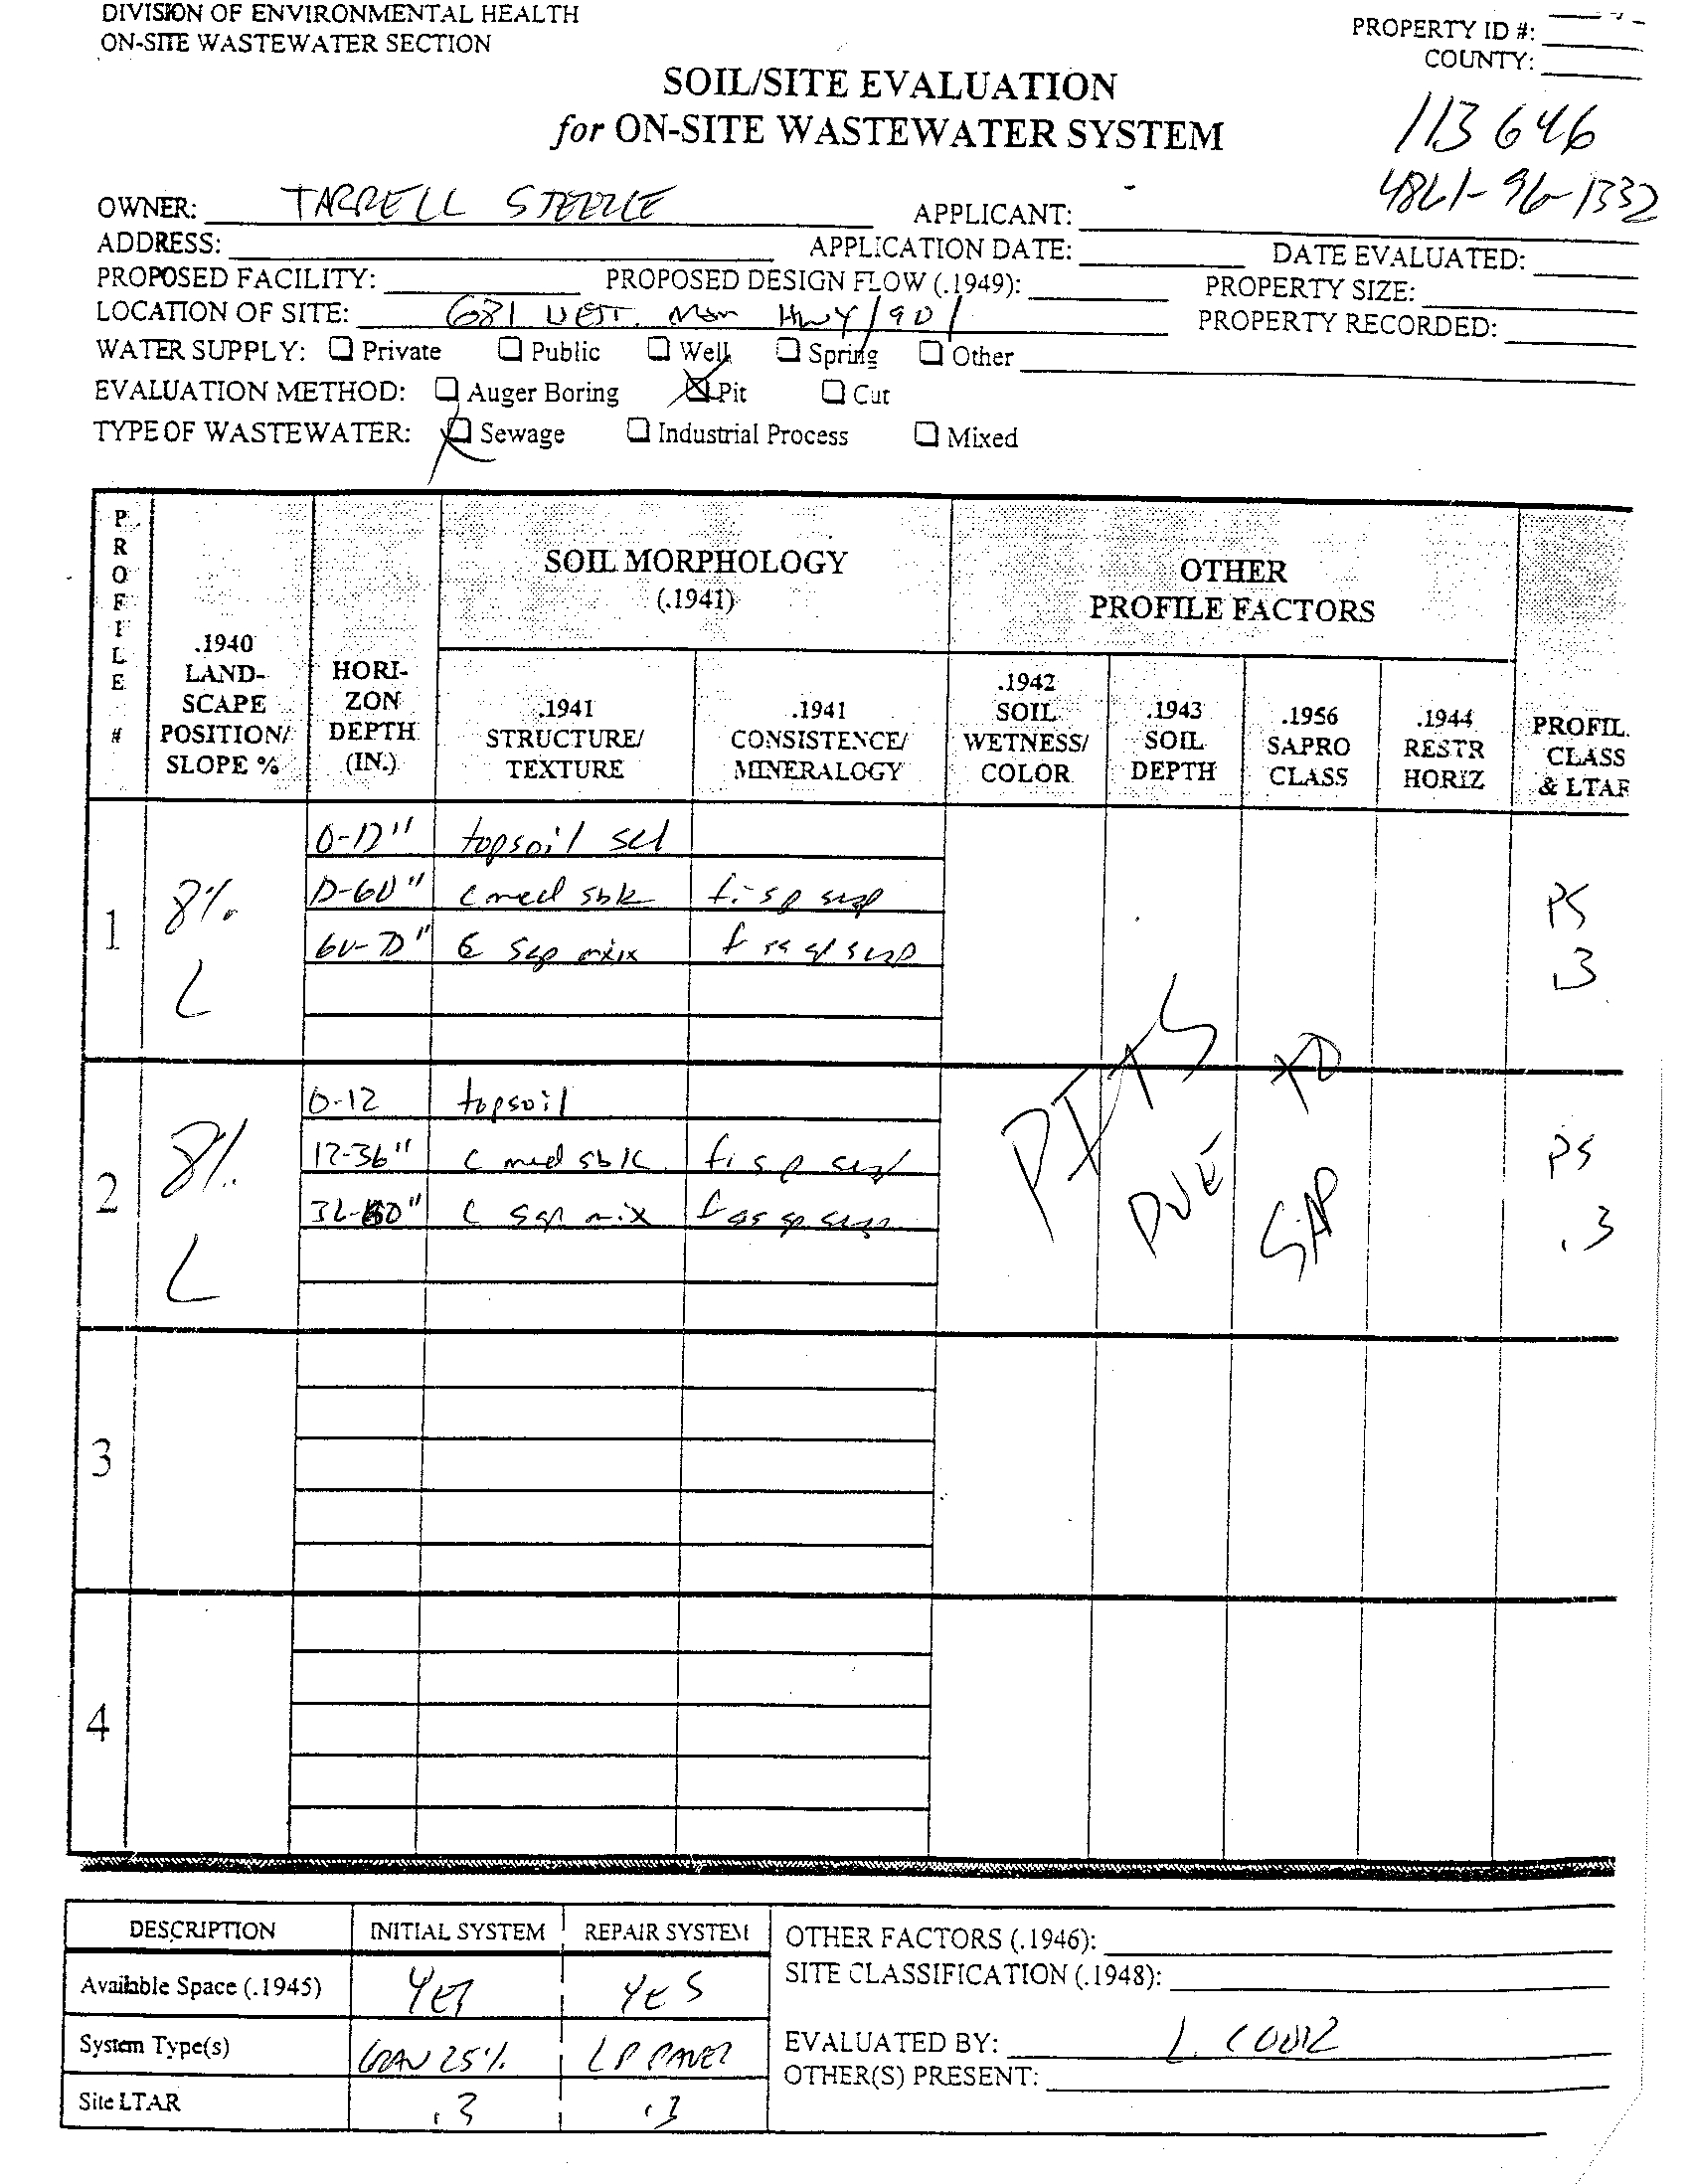 DIVISION OF ENVIRONMENTAL HEALTH
ON-SITE WASTEWATER SECTION
PROPERTY ID #:
COUNTY:
SOIL/SITE EVALUATION
for ON-SITE WASTEWATER SYSTEM
113646
4861-96-1332
OWNER: TARRELL STEELE APPLICANT:
ADDRESS: APPLICATION DATE: DATE EVALUATED:
PROPOSED FACILITY: PROPOSED DESIGN FLOW (.1949): PROPERTY SIZE:
LOCATION OF SITE: 681 WEST. Mem HWY/901 PROPERTY RECORDED:
WATER SUPPLY: Private Public Well Spring Other
EVALUATION METHOD: Auger Boring Pit Cut
TYPE OF WASTEWATER: Sewage Industrial Process Mixed
PROFILE #
.1940 LAND-SCAPE POSITION/ SLOPE %
HORI-ZON DEPTH (IN.)
SOIL MORPHOLOGY (.1941)
.1941 STRUCTURE/ TEXTURE
.1941 CONSISTENCE/ MINERALOGY
OTHER PROFILE FACTORS
.1942 SOIL WETNESS/ COLOR
.1943 SOIL DEPTH
.1956 SAPRO CLASS
.1944 RESTR HORIZ
PROFIL. CLASS & LTAR
1 8% L
0-12" topsoil scl
12-60" c med sbk fi sp sexp
sap mix
PS .3
PITS
DUE TO
SAP
2 8% L
0-12 topsoil
12-36" c med sbk fi sp sexp
c sap mix
PS .3
3
4
DESCRIPTION INITIAL SYSTEM REPAIR SYSTEM
Available Space (.1945) YES YES
System Type(s) GRAV 25% LP PANEL
Site LTAR .3 .3
OTHER FACTORS (.1946):
SITE CLASSIFICATION (.1948):
EVALUATED BY: L.
OTHER(S) PRESENT: